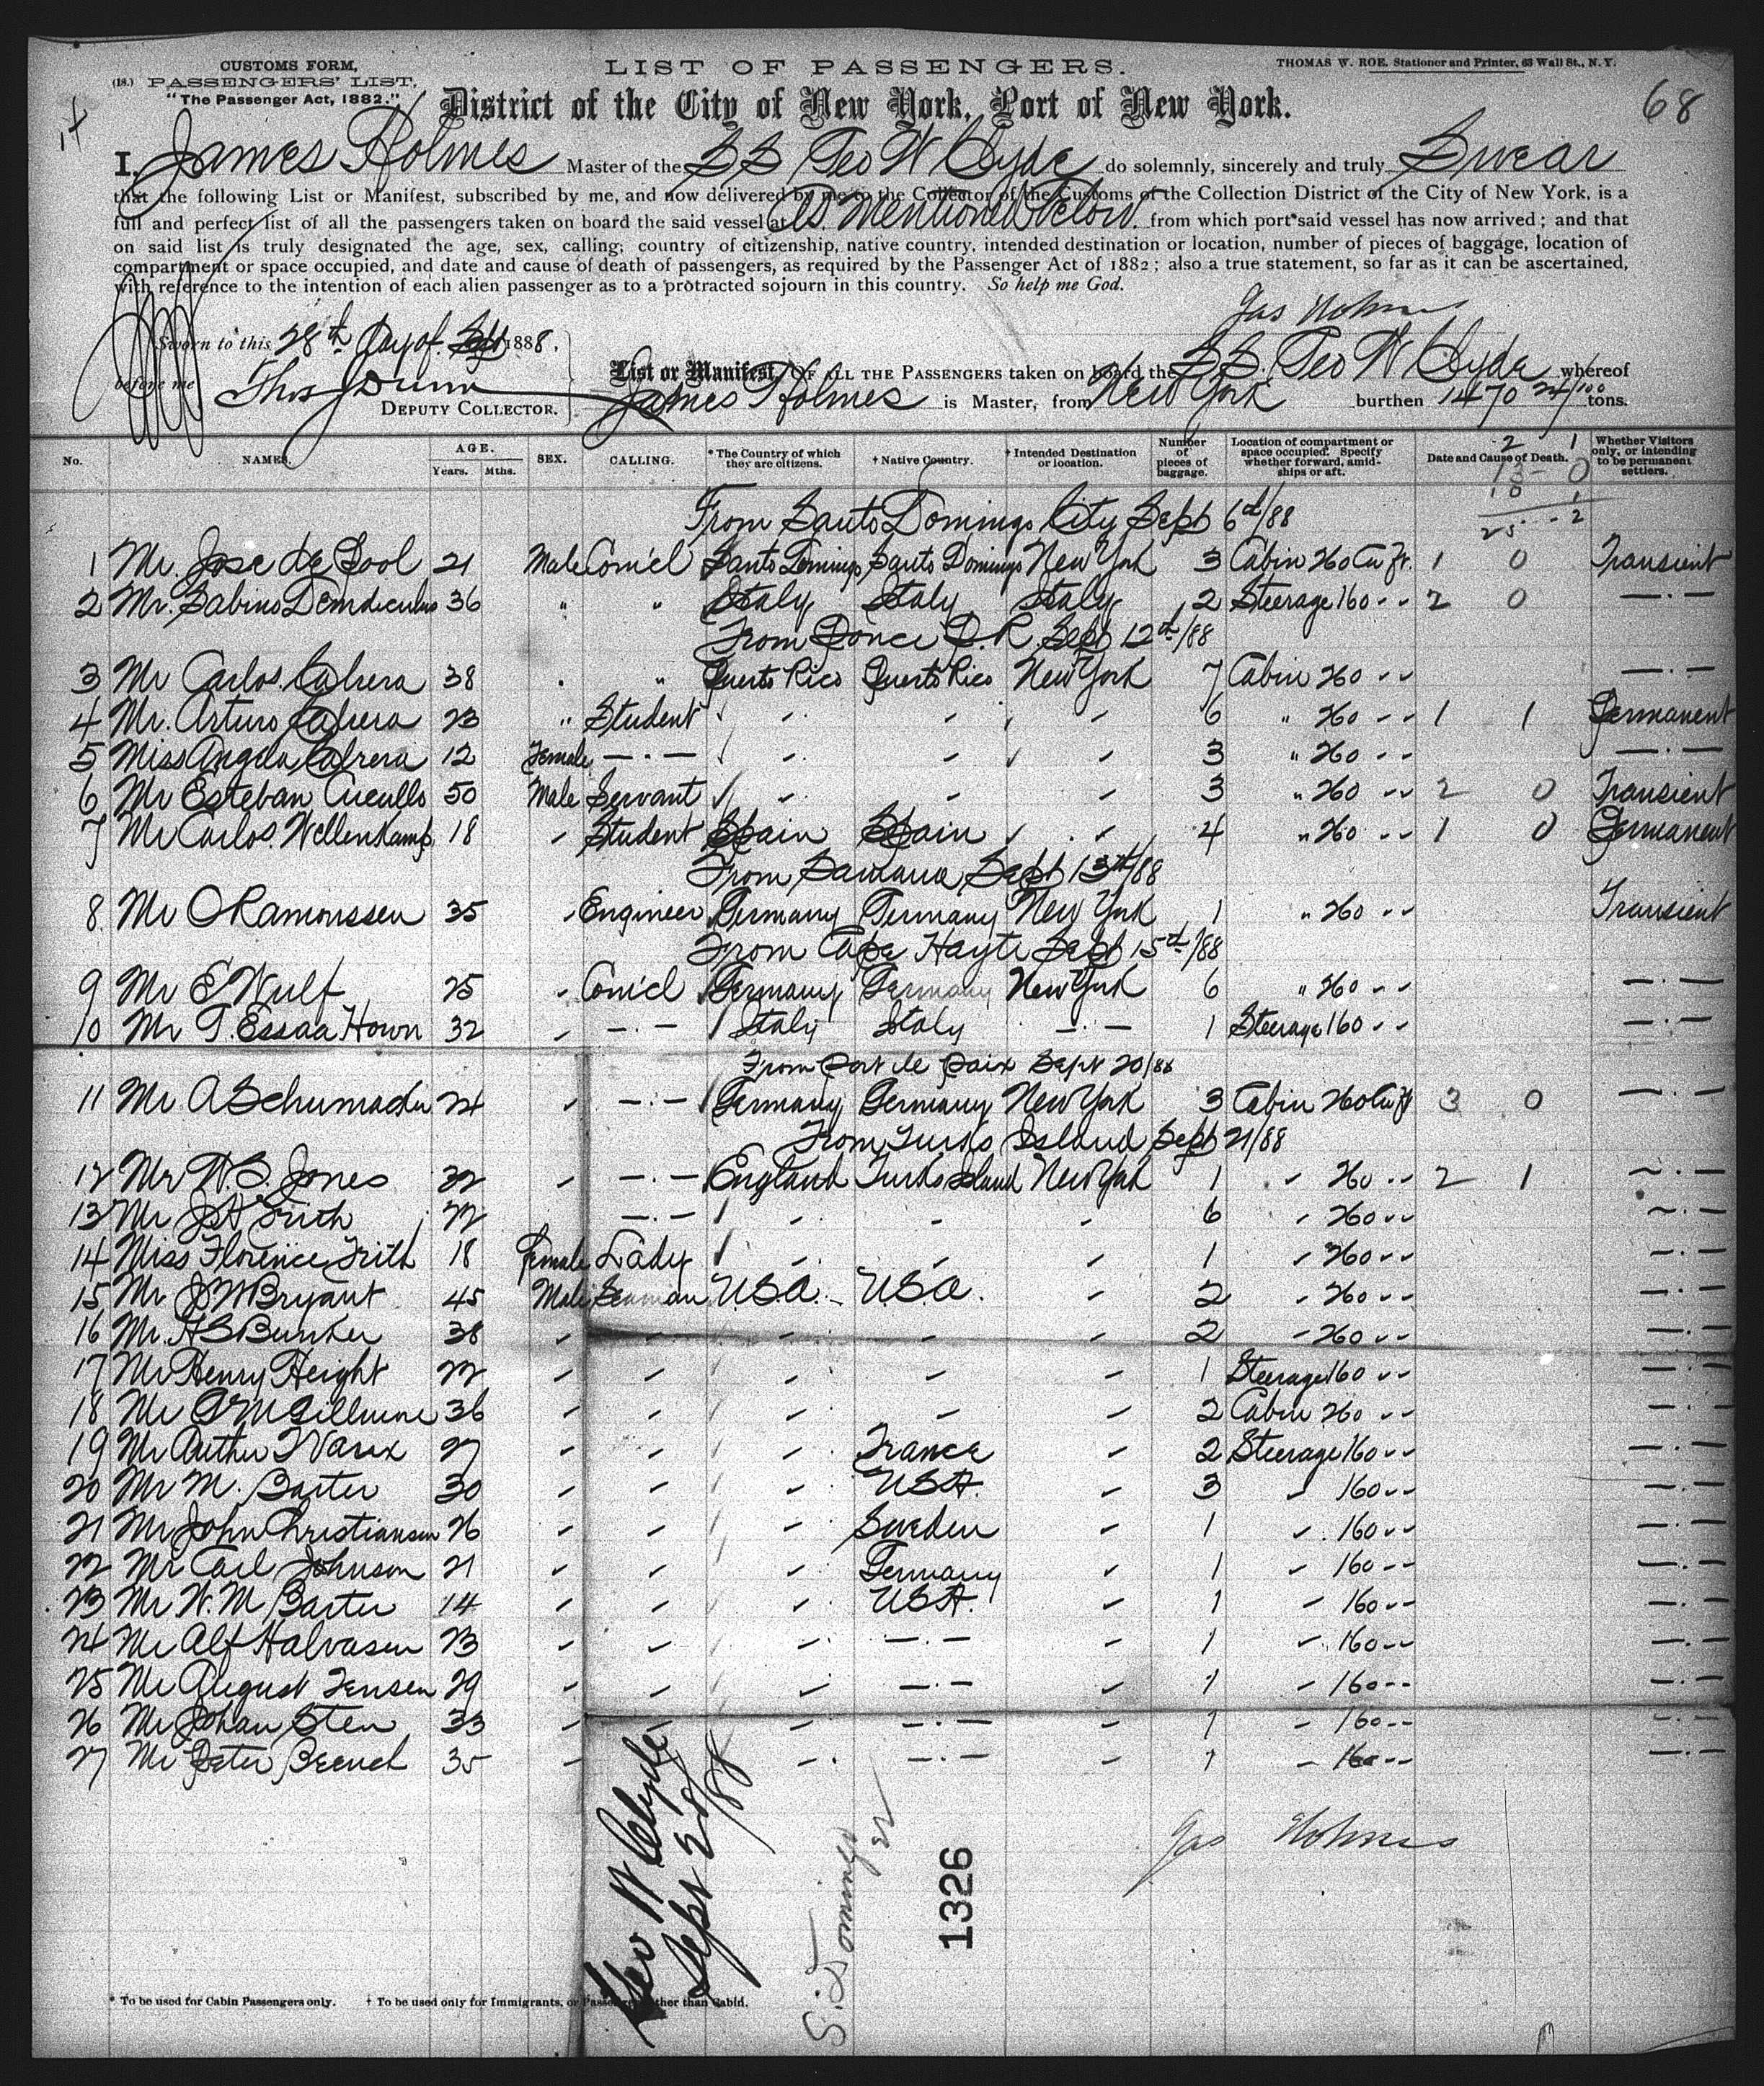 CUSTOMS FORM,
(18.) PASSENGERS' LIST,
"The Passenger Act, 1882."
LIST OF PASSENGERS.
THOMAS W. ROE, Stationer and Printer, 63 Wall St., N.Y.
District of the City of New York, Port of New York.
68
I, James Holmes Master of the SS Geo W Clyde do solemnly, sincerely and truly Swear
that the following List or Manifest, subscribed by me, and now delivered by me to the Collector of the Customs of the Collection District of the City of New York, is a
full and perfect list of all the passengers taken on board the said vessel at As Mentioned below from which port said vessel has now arrived; and that
on said list is truly designated the age, sex, calling, country of citizenship, native country, intended destination or location, number of pieces of baggage, location of
compartment or space occupied, and date and cause of death of passengers, as required by the Passenger Act of 1882; also a true statement, so far as it can be ascertained,
with reference to the intention of each alien passenger as to a protracted sojourn in this country. So help me God.
Jas Holmes
Sworn to this 28th Day of Sept 1888,
before me Thos J Dunn
DEPUTY COLLECTOR.
List or Manifest, OF ALL THE PASSENGERS taken on board the SS Geo W Clyde whereof
James Holmes is Master, from New York burthen 1470 24/100 tons.
No. NAMES. AGE. Years. Mths. SEX. CALLING. * The Country of which they are citizens. † Native Country. † Intended Destination or location. Number of pieces of baggage. Location of compartment or space occupied. Specify whether forward, amidships or aft. Date and Cause of Death. Whether Visitors only, or intending to be permanent settlers.
2 1
13 - 0
10 1
25 - 2
From Santo Domingo City Sept 6th/88
1 Mr. Jose de Sool 21 Male Com'cl Santo Domingo Santo Domingo New York 3 Cabin 260 Cu ft. 1 0 Transient
2 Mr. Sabino 36 " " Italy Italy Italy 2 Steerage 160 " " 2 0 — · —
From Ponce P. R. Sept 12th/88
3 Mr Carlos Cabrera 38 " " Puerto Rico Puerto Rico New York 7 Cabin 260 " " — · —
4 Mr. Arturo Cabrera 23 " Student " " " 6 " 260 " " 1 1 Permanent
5 Miss Angela Cabrera 12 Female — · — " " " 3 " 260 " " — · —
6 Mr Esteban Cucullo 50 Male Servant " " " 3 " 260 " " 2 0 Transient
7 Mr Carlos Wellenkamp 18 " Student Spain Spain " 4 " 260 " " 1 0 Permanent
From Samana Sept 13th/88
8. Mr C Ramonssen 35 " Engineer Germany Germany New York 1 " 260 " " Transient
From Cape Hayti Sept 15th/88
9 Mr E Wulf 25 " Com'cl Germany Germany New York 6 " 260 " " — · —
10 Mr T. Essaa Hown 32 " — · — Italy Italy — · — 1 Steerage 160 " " — · —
From Port de Paix Sept 20/88
11 Mr A Schumacher 24 " — · — Germany Germany New York 3 Cabin 260 Cu ft 3 0 — · —
From Turks Island Sept 21/88
12 Mr W. S. Jones 32 " — · — England Turks Island New York 1 " 260 " " 2 1 — · —
13 Mr J A Frith 22 — · — " " " 6 " 260 " " — · —
14 Miss Florence Frith 18 Female Lady " " " 1 " 260 " " — · —
15 Mr J W Bryant 45 Male Seaman U.S.A. U.S.A. " 2 " 260 " " — · —
16 Mr. H S Bunker 38 " " " " " 2 " 260 " " — · —
17 Mr Henry Height 22 " " " " " 1 Steerage 160 " " — · —
18 Mr 36 " " " " " 2 Cabin 260 " " — · —
19 Mr Arthur 27 " " " France " 2 Steerage 160 " " — · —
20 Mr M. Baxter 30 " " " USA. " 3 " 160 " " — · —
21 Mr John Christiansen 26 " " " Sweden " 1 " 160 " " — · —
22 Mr Carl Johnson 21 " " " Germany " 1 " 160 " " — · —
23 Mr W. M Baxter 14 " " " USA. " 1 " 160 " " — · —
24 Mr Alf Halvasen 23 " " " — · — " 1 " 160 " " — · —
25 Mr August Jensen 29 " " " — · — " 1 " 160 " " — · —
26 Mr Johan Sten 33 " " " — · — " 1 " 160 " " — · —
27 Mr Peter 35 " " — · — " 1 " 160 " " — · —
Geo W Clyde
Sept 28/88
S. Domingo
22
1326
Jas Holmes
* To be used for Cabin Passengers only. † To be used only for Immigrants, or Passengers other than Cabin.